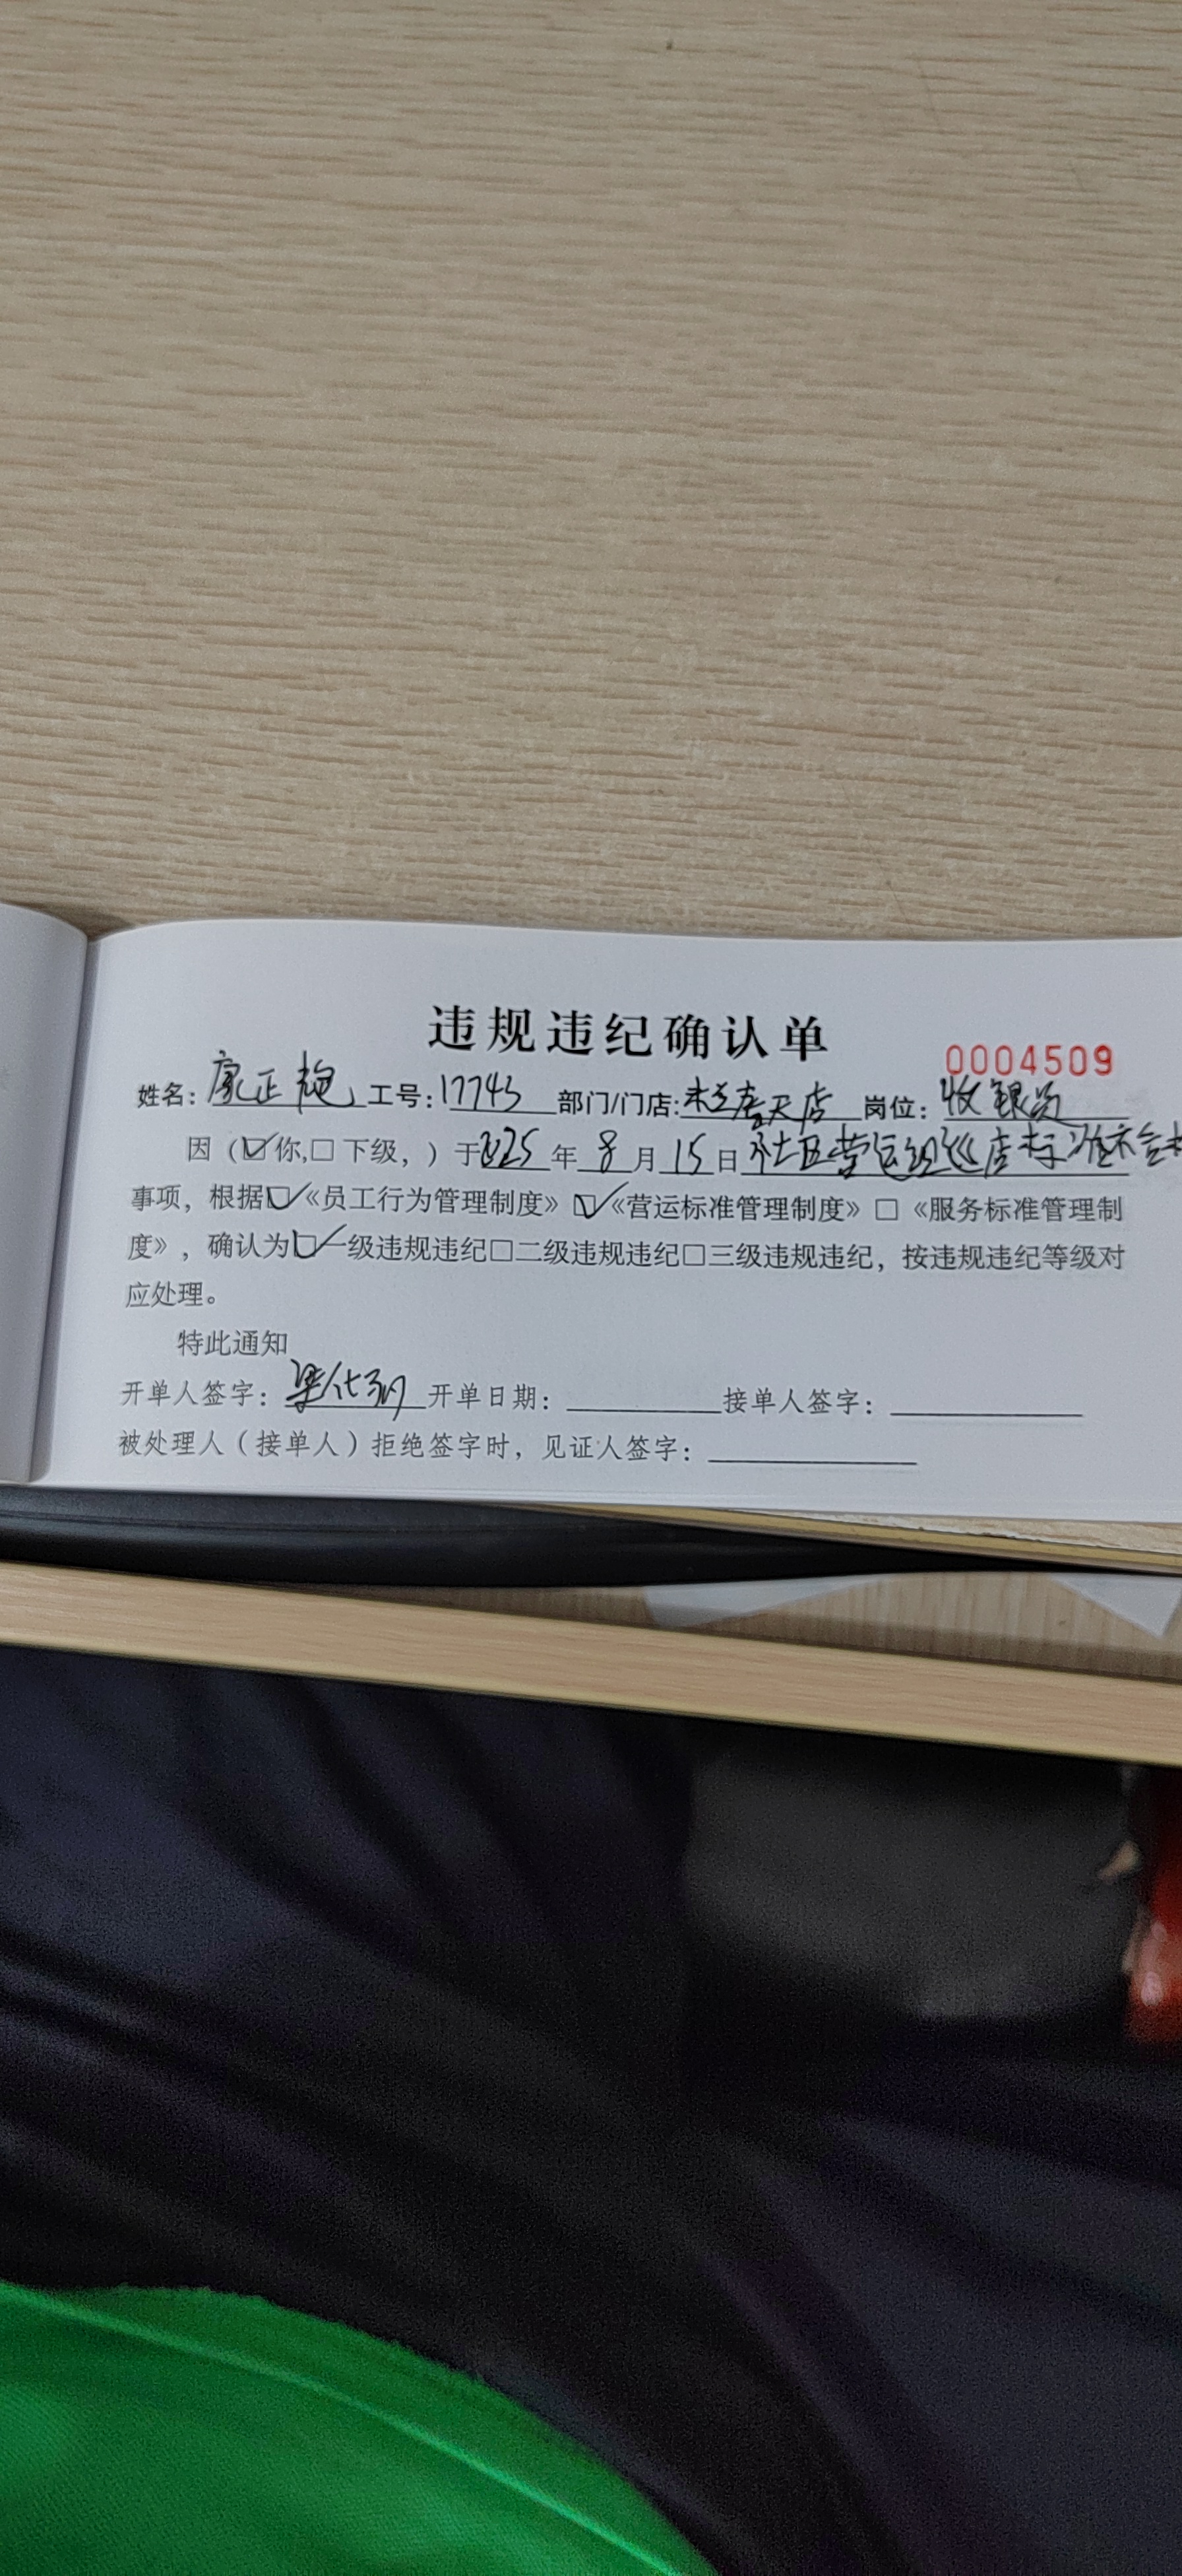 违规违纪确认单
0004509
姓名：康正艳 工号：17743 部门/门店： 天店 岗位：收银员
因（☑你,□下级，）于2025年8月15日社区营运组巡店标准不合格
事项，根据☑《员工行为管理制度》☑《营运标准管理制度》□《服务标准管理制
度》，确认为☑一级违规违纪□二级违规违纪□三级违规违纪，按违规违纪等级对
应处理。
特此通知
开单人签字： 开单日期： 接单人签字：
被处理人（接单人）拒绝签字时，见证人签字：